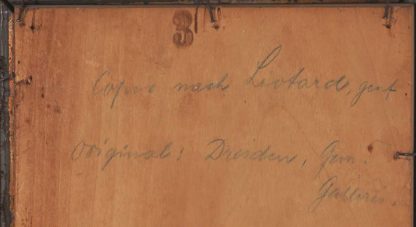 3
Copie nach Liotard, gest
Original: Dresden, Gem.
Gallerie.